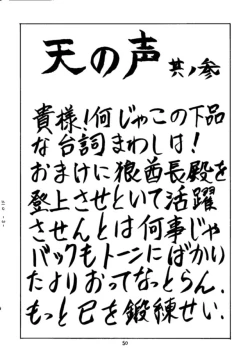 天の声 其ノ参
貴様!何じゃこの下品
な台詞まわしは!
おまけに狼酋長殿を
登上させといて活躍
させんとは何事じゃ
バックもトーンにばかり
たよりおってなっとらん.
もっと己を鍛練せい.
50